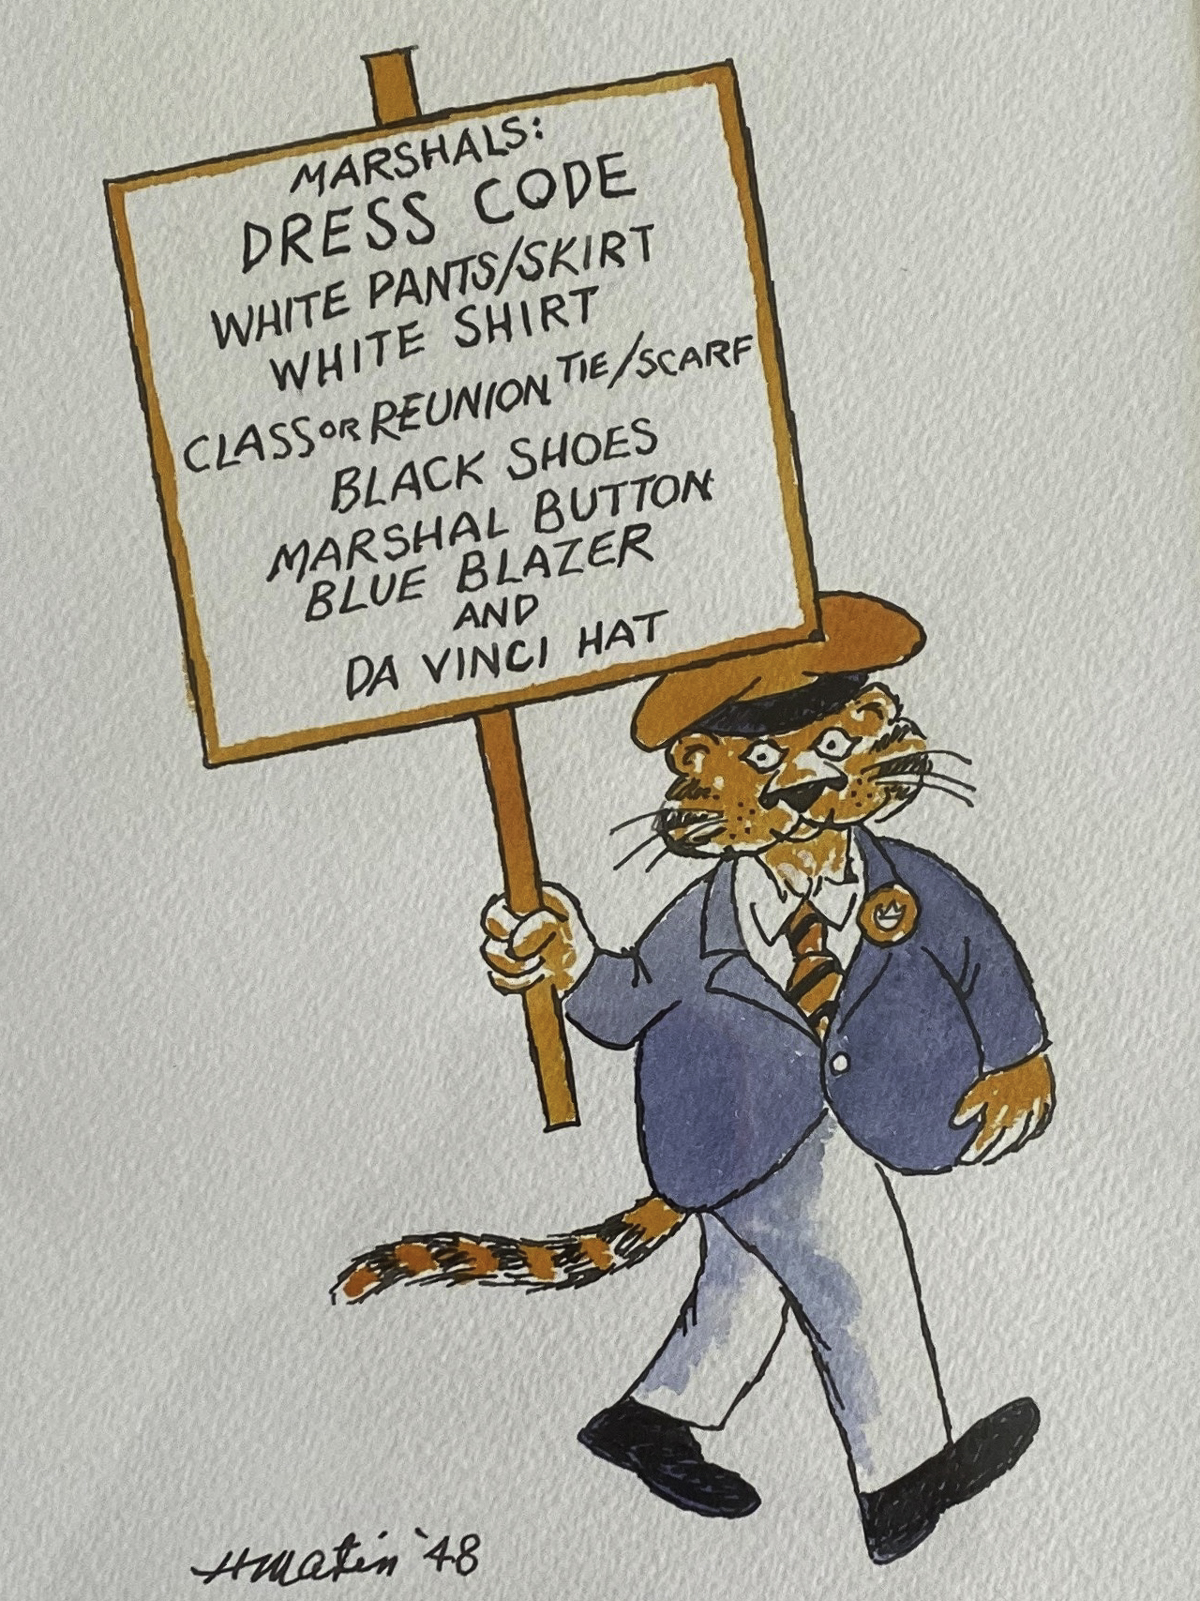 MARSHALS:
DRESS CODE
WHITE PANTS/SKIRT
WHITE SHIRT
CLASS OR REUNION TIE/SCARF
BLACK SHOES
MARSHAL BUTTON
BLUE BLAZER
AND
DA VINCI HAT
HMartin '48